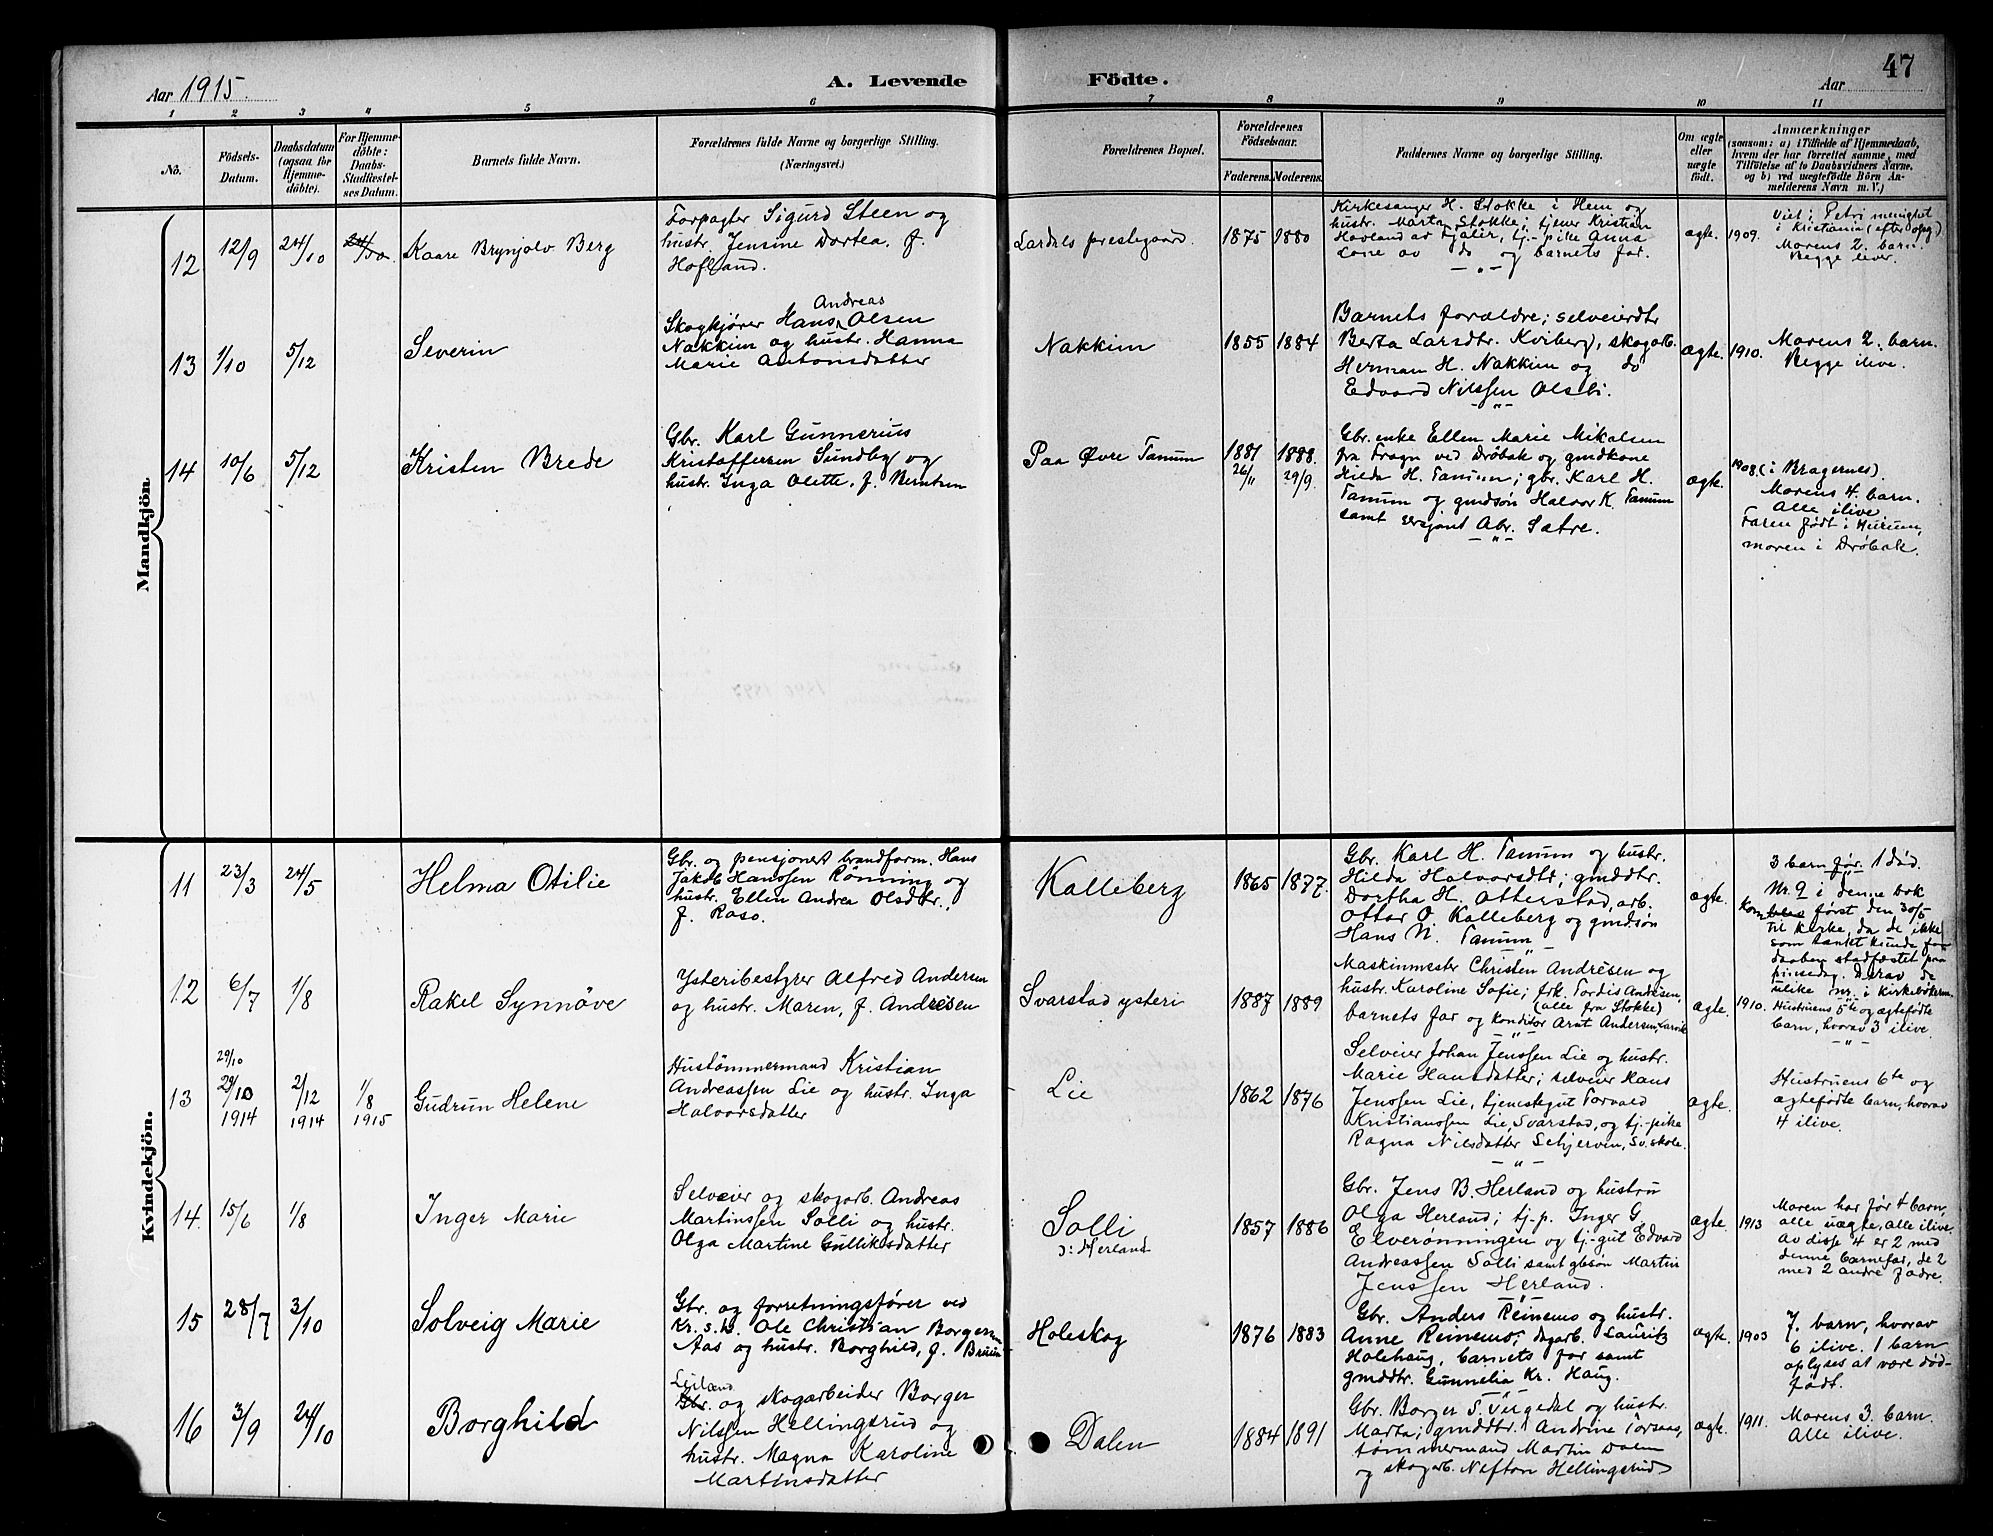 47
Aar 1915.
A. Levende
Födte.
Aar
1 2 3 4 5 6 7 8 9 10 11
No.
Födsels-
Datum.
Daabsdatum
(ogsaa for
Hjemme-
döbte).
For Hjemme-
döbte:
Daabs-
Stadfæstel-
ses Datum.
Barnets fulde Navn.
Forældrenes fulde Navne og borgerlige Stilling.
(Næringsvei.)
Forældrenes Bopæl.
Forældrenes
Födselsaar.
Faderens. Moderens.
Faddernes Navne og borgerlige Stilling.
Om ægte
eller
uægte
født.
Anmærkninger
(saasom: a) i Tilfælde af Hjemmedaab,
hvem der har forrettet samme, med
Tilföielse af to Daabsvidners Navne,
og b) ved uægtefödte Börn An-
melderens Navn m. V.)
Mandkjön
12
12/9
24/10
Kaare Brynjolv Berg
Forpagter Sigurd Steen og
hustr. Jensine Dortea, f.
Hofland.
Lardals prestegaard.
1875 1880
Kirkesanger H. Stokke i Hem og
hustr. Marta Stokke; tjener Kristian
Havland av Fjaler, tj.-pike Anna
Lone av do og barnets far.
ægte.
1909.
Viet i Petri menighet
i Kristiania (efter opg).
Morens 2. barn.
Begge lever.
13
1/10
5/12
Severin
Andreas
Skogkjører Hans Olsen
Nakkim og hustr. Hanna
Marie Antonsdatter
Nakkim
1855 1884
Barnets forældre; selveierdtr
Berta Larsdtr. Kviberg, skogarb.
Herman H. Nakkim og do
Edvard Nilssen Olsbi.
ægte.
1910.
Morens 2. barn.
Begge ilive.
14
10/6
5/12
Kristen Brede
Gbr. Karl Gunnerius
Kristoffersen Sundby og
hustr. Inga Olette, f. Berntsen
Paa Øvre Tanum
1881 1888.
26/11 29/9.
Gbr. enke Ellen Marie Mikalsen
fra Frogn ved Drøbak og gmdkone
Hilda H. Tanum; gbr. Karl H.
Tanum og gmdsøn Halvor K. Tanum
samt sersjant Abr. Sætre.
ægte.
1908. (i Bragernes).
Morens 4. barn.
Alle ilive
Faren født i Hurum,
moren i Drøbak.
Kvindekjön.
11
23/3
24/5
Helma Otilie
Gbr. og pensjonert brandform. Hans
Jakob Hanssen Rønning og
hustr. Ellen Andrea Olsdtr.,
f. Raso.
Kalleberg
1865 1877.
Gbr. Karl H. Tanum og hustr.
Hilda Halvorsdtr; gmddtr.
Dortha H. Atterstad, arb.
Ottar O. Kalleberg og gmdsøn
Hans N. Tanum
ægte.
3 barn før. 1 død.
Nr. 9 i denne bok
kom først den 30/5
til kirke, da de ikke
som tænkt kunde faa
daaben stadfæstet paa
pinsedag. Derav de
ulike nr. i kirkebøkerne.
12
6/7
1/8
Rakel Synnöve
Ysteribestyrer Alfred Andersen
og hustr. Maren, f. Andresen
Svarstad ysteri
1887 1889
Maskinmester Christen Andresen og
hustr. Karoline Sofie; frk. Tordis Andresen,
(alle fra Stokke)
barnets far og konditor Arnt Andersen, Larvik
ægte.
1910.
Hustruens 5te og ægtefödte
barn, hvorav 3 ilive.
13
29/10
29/10
1914
2/12
1914
1/8
1915
Gudrun Helene
Hustømmermand Kristian
Andreassen Lie og hustr. Inga
Halvorsdatter
Lie
1862 1876
Selveier Johan Jenssen Lie og hustr.
Marie Hansdatter; selveier Hans
Jenssen Lie, tjenestegut Torvald
Kristianssen Lie, Svarstad, og tj.-pike
Ragna Nilsdatter Schjerven, Sv. skole.
ægte.
Hustruens 6te og
ægtefødte barn, hvorav
4 ilive.
14.
15/6
1/8
Inger Marie
Selveier og skogarb. Andreas
Martinssen Solli og hustr.
Olga Martine Gulliksdatter
Solli
ɔ: Herland
1857 1886
Gbr. Jens B. Herland og hustru
Olga Herland; tj.-p. Inger G.
Elverønningen og tj.-gut Edvard
Andreassen Solli samt gbsøn Martin
Jenssen Herland.
ægte.
1913
Moren har før 4 barn,
alle uægte, alle ilive.
Av disse 4 er 2 med
denne barnefar, de 2
med 2 andre fædre.
15
28/7
3/10
Solveig Marie
Gbr. og forretningsfører ved
Kr. s.k. Ole Christian Borgersen
Aas og hustr. Borghild, f. Bruun
Holeskog
1876 1883
Gbr. Anders Reinemo og hustr.
Anne Reinemo; dagarb. Lauritz
Holehaug, barnets far samt
gmddtr. Gunnelia Kr. Haug.
ægte.
1903
7. barn, hvorav
6 ilive. 1 barn
oplyses at være død-
født.
16
3/9
24/10
Borghild
Leilænd
Gbr. og skogarbeider Borger
Nilssen Hellingsrud og
hustr. Magna Karoline
Martinsdatter
Dalen
1884 1891
Gbr. Borger S. Teigedal og hustr.
Marta; gmddtr. Andrine Torsaas,
tømmermand Martin Dalen
og skogarb. Nefton Hellingsrud
ægte.
1911.
Morens 3. barn.
Alle ilive.